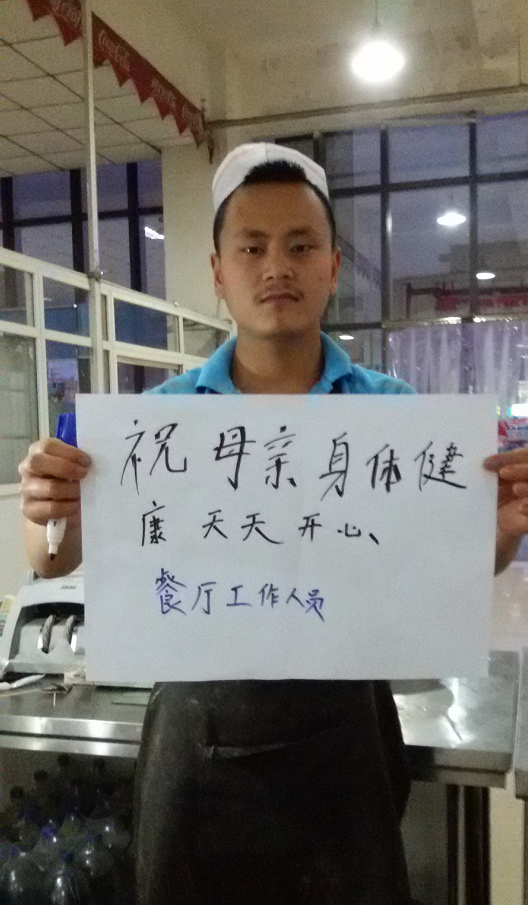 祝母亲身体健
康天天开心、
餐厅工作人员